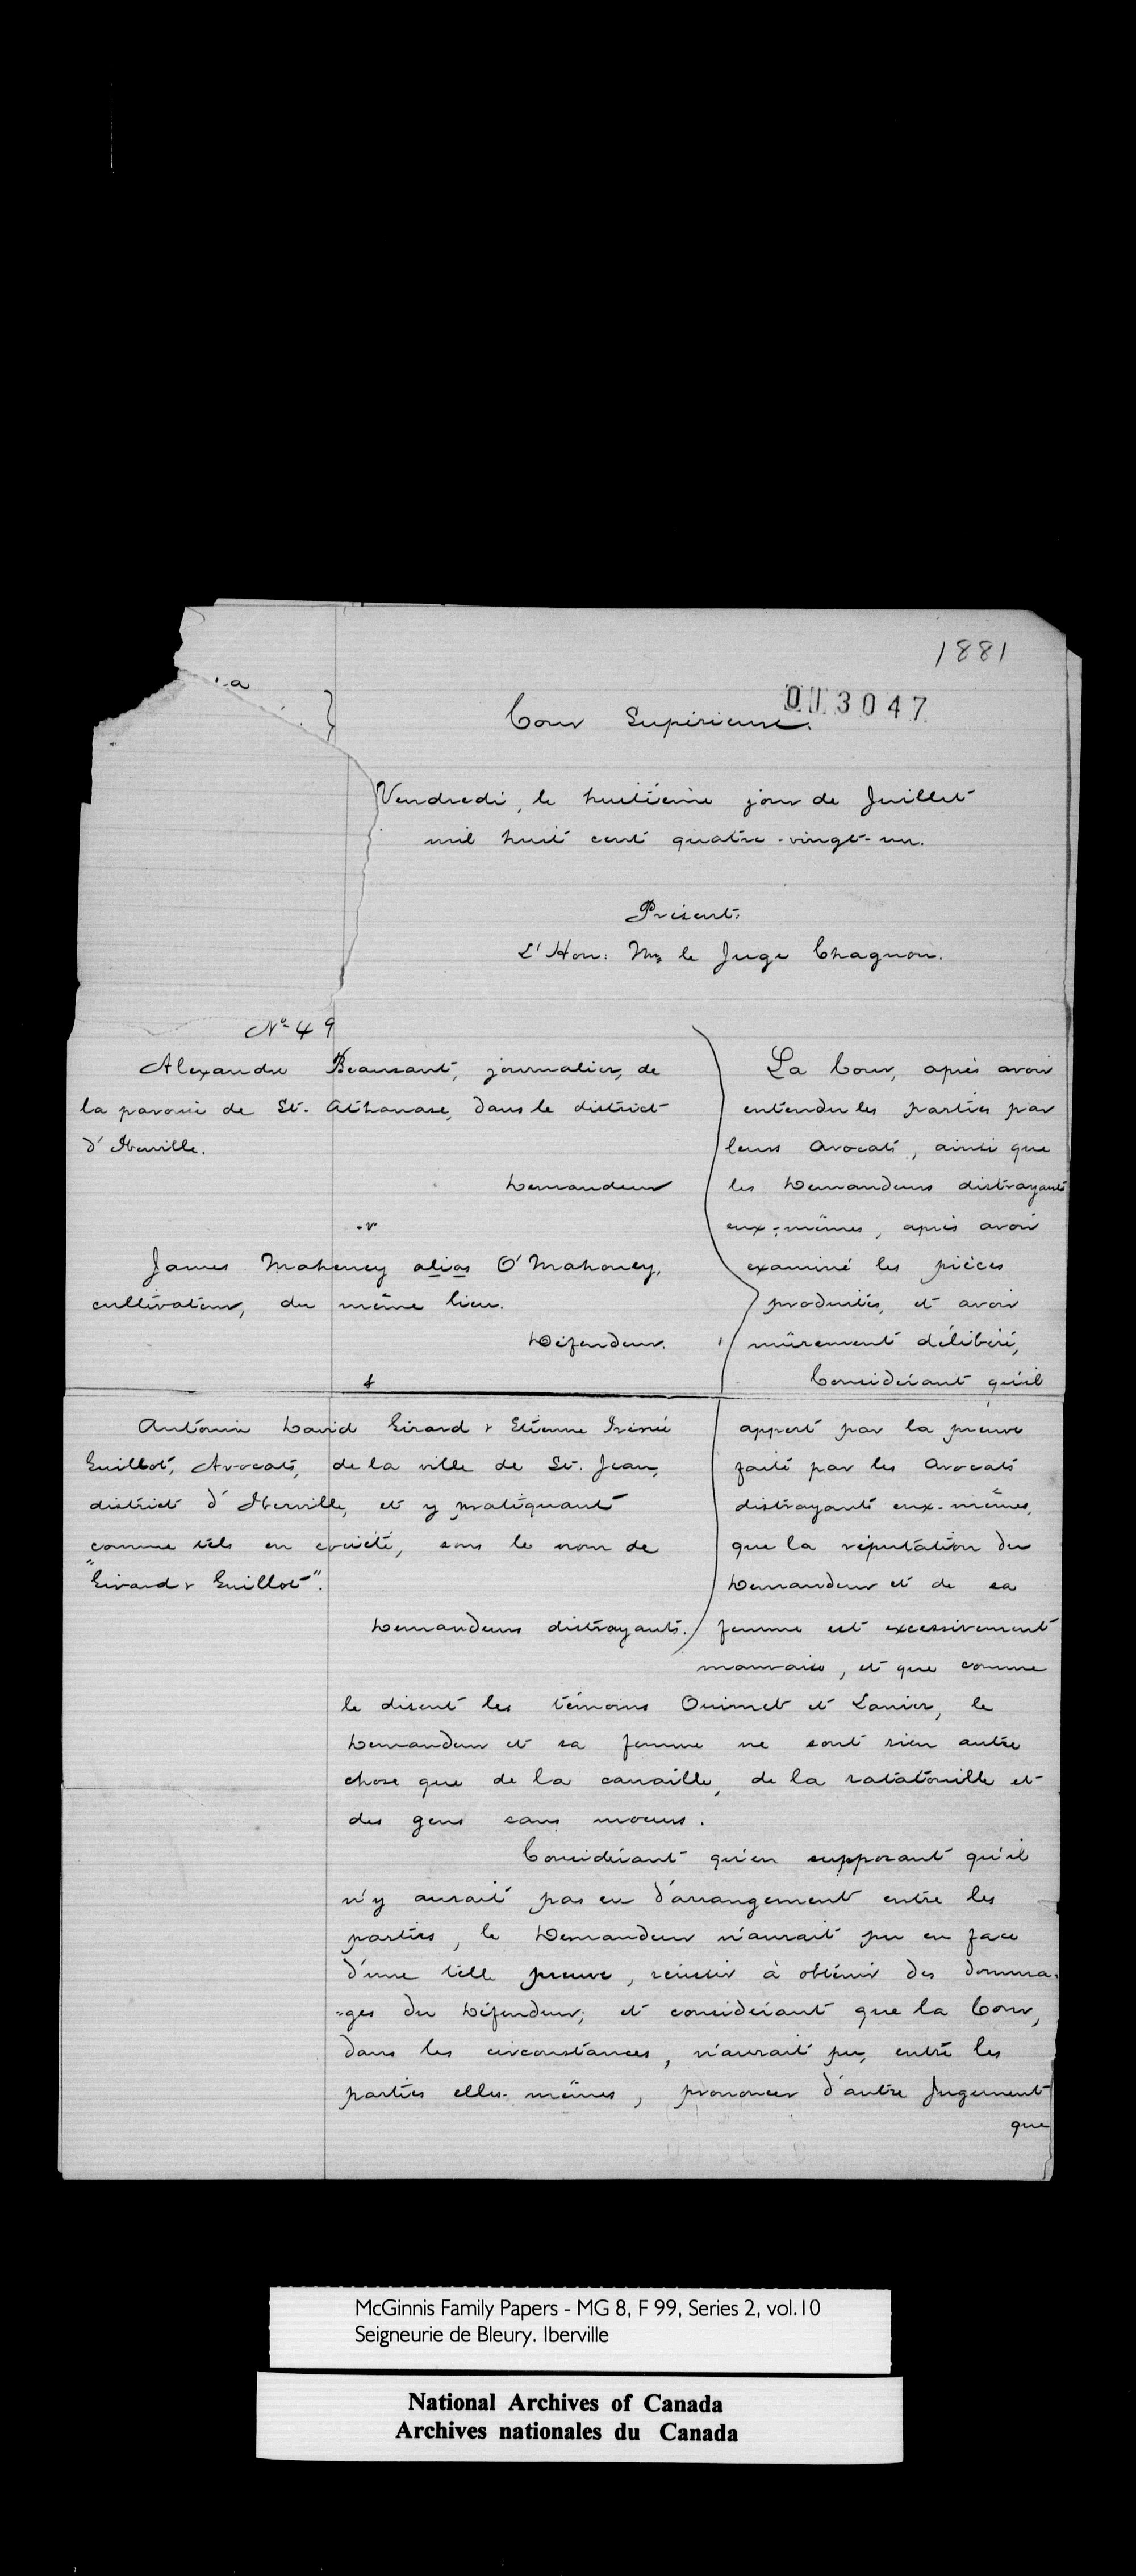 1881
013047
Cour Supérieure.
Vendredi, le huitième jour de Juillet
mil huit cent quatre-vingt-un.
Présent:
L'Hon: Mr le Juge Chagnon.
No 49
Alexandre Beausant, journalier, de
la paroisse de St. Athanase, dans le district
d'Iberville.
Demandeur
-v
James Mahoney alias O'Mahoney,
cultivateur, du même lieu.
Défendeur.
&
Antonin David Girard & Etienne Irénée
Guillot, Avocats, de la ville de St. Jean,
district d'Iberville, et y pratiquant
comme tels en société, sous le nom de
"Girard & Guillot".
Demandeurs distrayants.
La Cour, après avoir
entendu les parties par
leurs Avocats, ainsi que
les Demandeurs distrayants
eux-mêmes, après avoir
examiné les pièces
produites, et avoir
mûrement délibéré,
Considérant qu'il
appert par la preuve
faite par les Avocats
distrayants eux-mêmes,
que la réputation du
Demandeur et de sa
femme est excessivement
mauvaise, et que comme
le disent les témoins Ouimet et Lanier, le
Demandeur et sa femme ne sont rien autre
chose que de la canaille, de la ratatouille et
des gens sans moeurs.
Considérant qu'en supposant qu'il
n'y aurait pas eu d'arrangement entre les
parties, le Demandeur n'aurait pu en face
d'une telle preuve, réussir à obtenir des domma-
-ges du Défendeur; et considérant que la Cour,
dans les circonstances, n'aurait pu, entre les
parties elles-mêmes, prononcer d'autre Jugement
que
McGinnis Family Papers - MG 8, F 99, Series 2, vol.10
Seigneurie de Bleury. Iberville
National Archives of Canada
Archives nationales du Canada